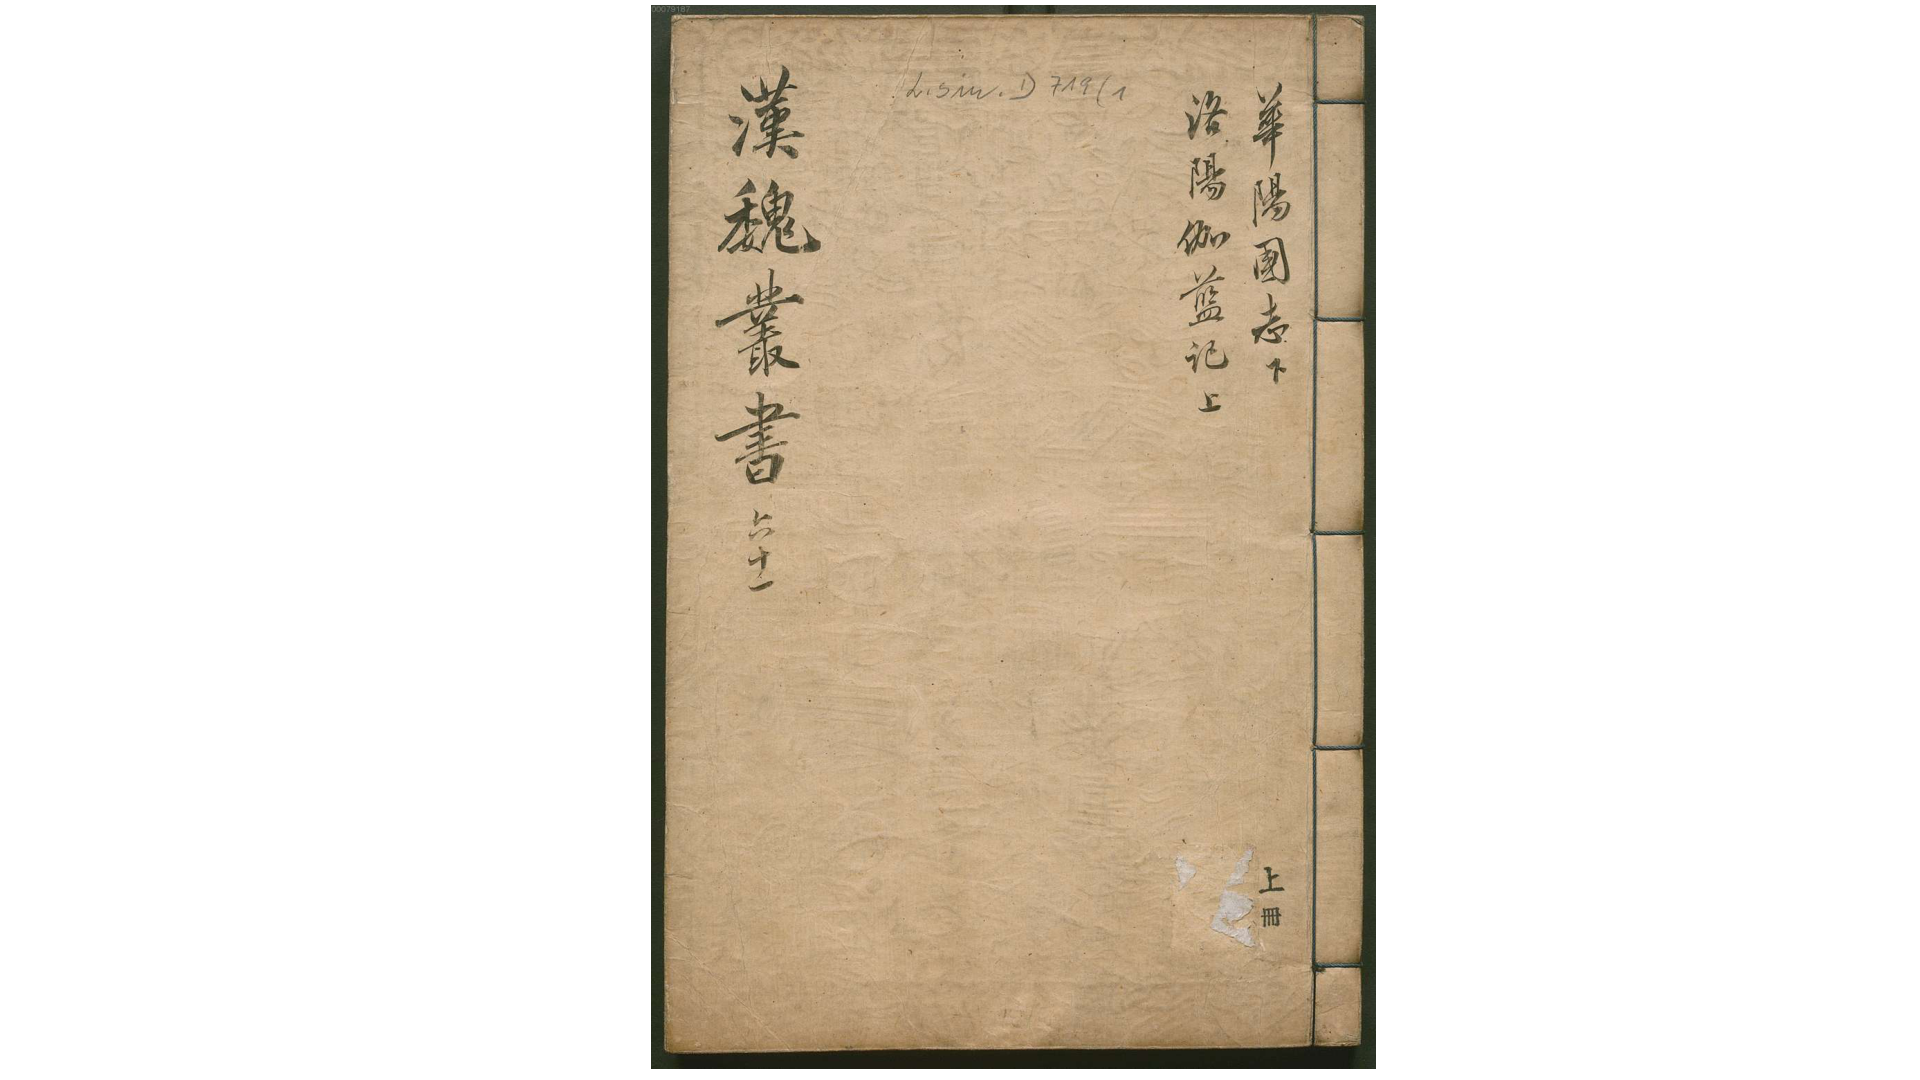 華陽國志下
洛陽伽藍記上
上冊
漢魏叢書 六十一
L.sin. D 719(1
00079187